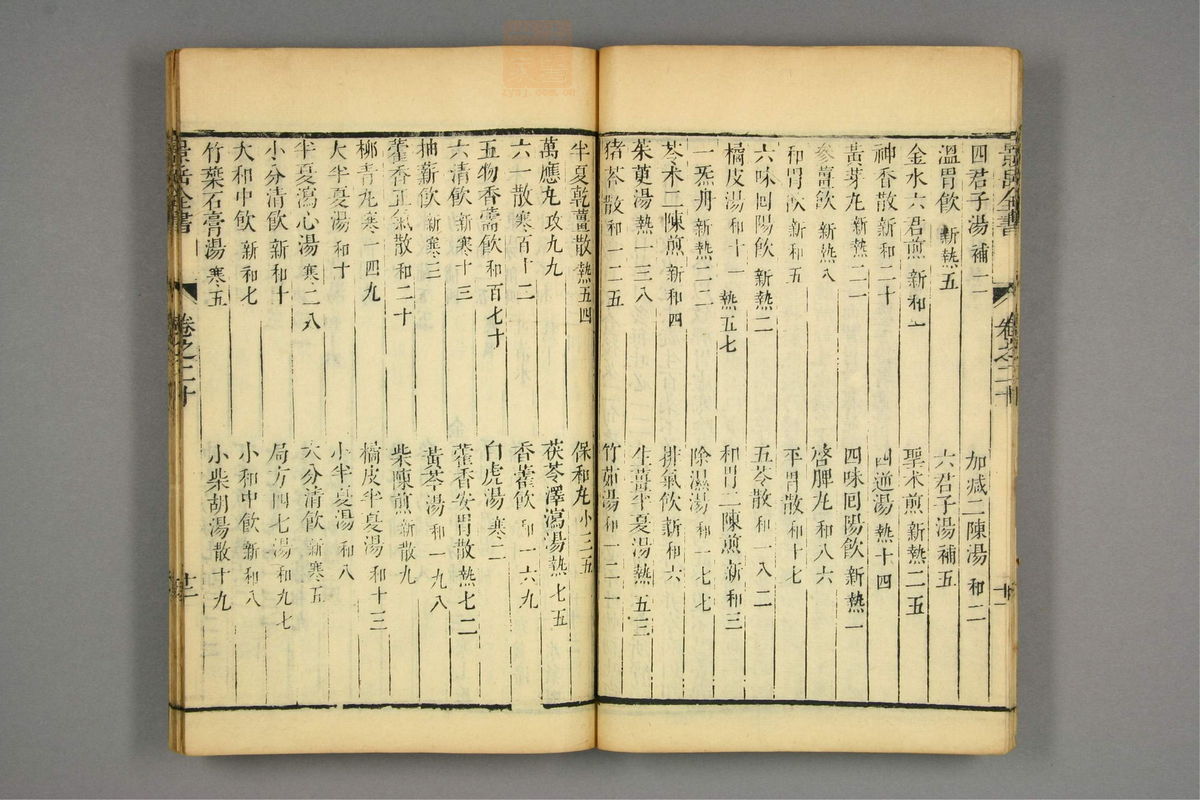 景岳全書
卷之二十
四君子湯 補一
加減二陳湯 和二
溫胃飲 新熱五
六君子湯 補五
金水六君煎 新和一
聖朮煎 新熱二五
神香散 新和二十
四逆湯 熱十四
黃芽丸 新熱二一
四味回陽飲 新熱一
參薑飲 新熱八
啓脾丸 和八六
和胃飲 新和五
平胃散 和十七
六味回陽飲 新熱二
五苓散 和一八二
橘皮湯 和十一 熱五七
和胃二陳煎 新和三
一炁丹 新熱二二
除濕湯 和一七七
苓朮二陳煎 新和四
排氣飲 新和六
茱萸湯 熱一三八
生薑半夏湯 熱五三
猪苓散 和一二五
竹茹湯 和一二一
半夏乾薑散 熱五四
保和丸 小三五
萬應丸 攻九九
茯苓澤瀉湯 熱七五
六一散 寒百十二
香薷飲 和一六九
五物香薷飲 和百七十
白虎湯 寒二
六清飲 新寒十三
藿香安胃散 熱七二
抽薪飲 新寒三
黃芩湯 和一九八
藿香正氣散 和二十
柴陳煎 新散九
柳青丸 寒一四九
橘皮半夏湯 和十三
大半夏湯 和十
小半夏湯 和八
半夏瀉心湯 寒二八
大分清飲 新寒五
小分清飲 新和十
局方四七湯 和九七
大和中飲 新和七
小和中飲 新和八
竹葉石膏湯 寒五
小柴胡湯 散十九
景岳全書
卷之二十